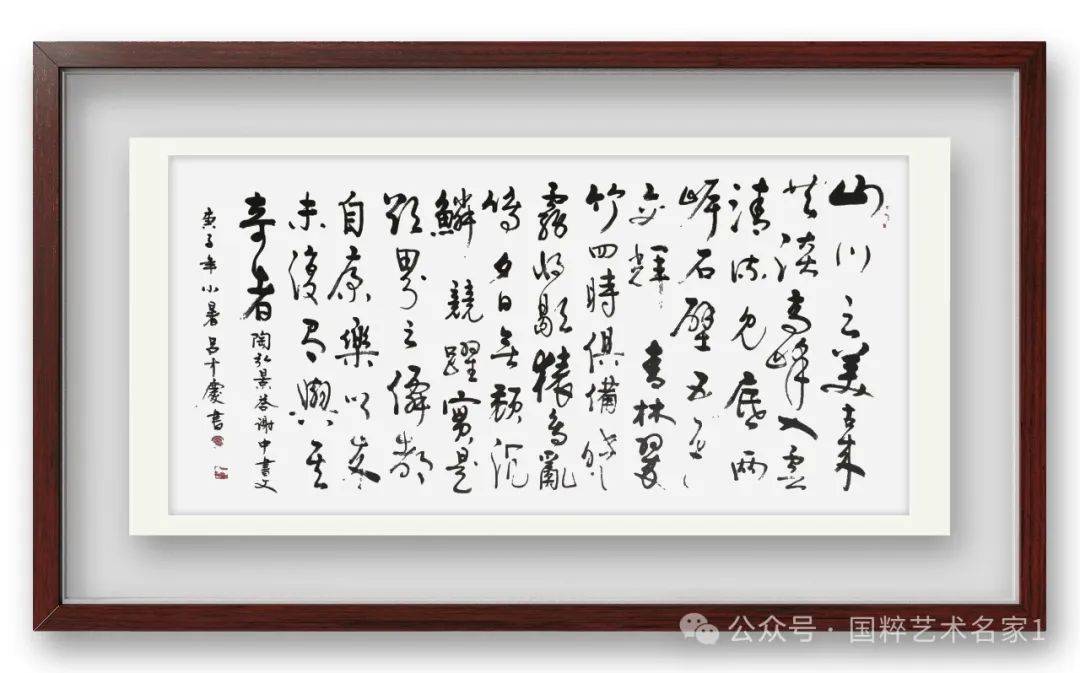 山川之美古来
共談高峰入雲
清流見底兩
岸石壁五色
交輝青林翠
竹四時俱備曉
霧將歇猿鳥亂
鳴夕日欲頹沉
鱗競躍實是
欲界之僊都
自康樂以來
未復有與其
奇者陶弘景答謝中書文
庚子年小暑吕才慶書
公众号·国粹艺术名家1